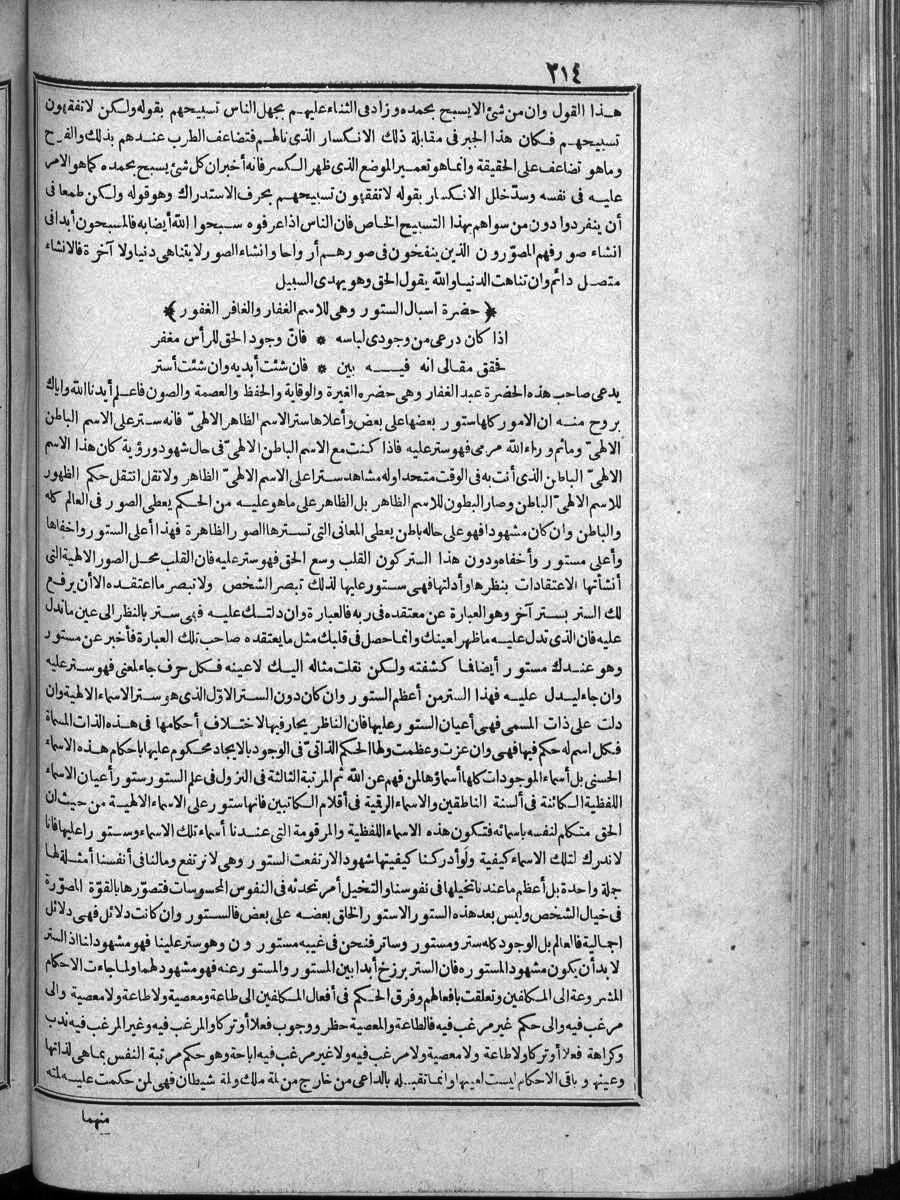 ٢١٤
هذا القول وان من شئ الا يسبح بحمده وزاد فى الثناء عليهم بجهل الناس تسبيحهم بقوله ولكن لا تفقهون
تسبيحهم فكان هذا الجبر فى مقابلة ذلك الانكسار الذى نالهم فتضاعف الطرب عندهم بذلك والفرح
وما هو تضاعف على الحقيقة وانما هو تعمير الموضع الذى ظهر الكسر فانه أخبر ان كل شئ يسبح بحمده كما هو الامر
عليه فى نفسه وسدّ خلل الانكسار بقوله لا تفقهون تسبيحهم بحرف الاستدراك وهو قوله ولكن طمعا فى
أن ينفردوا دون من سواهم بهذا التسبيح الخاص فان الناس اذا عرفوه سبحوا الله أيضا به فالمسبحون أبدا فى
انشاء صور فهم المصوّرون الذين ينفخون فى صورهم أرواحا وانشاء الصور لا يتناهى دنيا ولا آخرة فالانشاء
متصل دائم وان تناهت الدنيا والله يقول الحق وهو يهدى السبيل
﴿ حضرة اسبال الستور وهى للاسم الغفار والغافر الغفور ﴾
اذا كان درعى من وجودى لباسه * فانّ وجود الحق للرأس مغفر
فحقق مقالى انه فيه بين * فان شئت أبديه وان شئت أستر
يدعى صاحب هذه الحضرة عبد الغفار وهى حضره الغيرة والوقاية والحفظ والعصمة والصون فاعلم أيدنا الله واياك
بروح منه ان الامور كلها ستور بعضها على بعض وأعلاها ستر الاسم الظاهر الالهىّ فانه ستر على الاسم الباطن
الالهىّ وما ثم وراء الله مرمى فهو ستر عليه فاذا كنت مع الاسم الباطن الالهىّ فى حال شهود ورؤية كان هذا الاسم
الالهىّ الباطن الذى أنت به فى الوقت متحد اوله مشاهد سترا على الاسم الالهىّ الظاهر ولا تقل انتقل حكم الظهور
للاسم الالهىّ الباطن وصار البطون للاسم الظاهر بل الظاهر على ما هو عليه من الحكم يعطى الصور فى العالم كله
والباطن وان كان مشهودا فهو على حاله باطن يعطى المعانى التى تسترها الصور الظاهرة فهذا أعلى الستور واخفاها
وأعلى مستور وأخفاه ودون هذا الستر كون القلب وسع الحق فهو ستر عليه فان القلب محل الصور الالهية التى
أنشأتها الاعتقادات بنظرها وأدلتها فهى ستور عليها لذلك تبصر الشخص ولا تبصر ما اعتقده الا أن يرفع
لك الستر بستر آخر وهو العبارة عن معتقده فى ربه فالعبارة وان دلتك عليه فهى ستر بالنظر الى عين ما تدل
عليه فان الذى تدل عليه ما ظهر لعينك وانما حصل فى قلبك مثل ما يعتقده صاحب تلك العبارة فأخبر عن مستور
وهو عندك مستور أيضا فما كشفته ولكن نقلت مثاله اليك لا عينه فكل حرف جاء لمعنى فهو ستر عليه
وان جاء ليدل عليه فهذا الستر من أعظم الستور وان كان دون الستر الاوّل الذى هو ستر الاسماء الالهية وان
دلت على ذات المسمى فهى أعيان الستور عليها فان الناظر يحار فيها لاختلاف أحكامها فى هذه الذات المسماة
فكل اسم له حكم فيها فهى وان عزت وعظمت ولها الحكم الذاتىّ فى الوجود بالايجاد محكوم عليها باحكام هذه الاسماء
الحسنى بل أسماء الموجودات كلها أسماؤها لمن فهم عن الله ثم المرتبة الثالثة فى النزول فى علم الستور ستور أعيان الاسماء
اللفظية الكائنة فى ألسنة الناطقين والاسماء الرقمية فى أقلام الكاتبين فانها ستور على الاسماء الالهية من حيث ان
الحق متكلم لنفسه باسمائه فتكون هذه الاسماء اللفظية والمرقومة التى عندنا أسماء تلك الاسماء وستورا عليها فانا
لا ندرك لتلك الاسماء كيفية ولو أدركنا كيفيتها شهودا لارتفعت الستور وهى لا ترتفع وما لنا فى أنفسنا أمثلة لها
جملة واحدة بل أعظم ما عندنا تخيلها فى نفوسنا والتخيل أمر تحدثه فى النفوس المحسوسات فتصوّرها بالقوّة المصوّرة
فى خيال الشخص وليس بعد هذه الستور الاستور الخلق بعضه على بعض فالستور وان كانت دلائل فهى دلائل
اجمالية فالعالم بل الوجود كله ستر ومستور وساتر فنحن فى غيبه مستورون وهو ستر علينا فهو مشهود لنا اذ الستر
لا بد أن يكون مشهود المستوره فان الستر برزخ أبدا بين المستور والمستور عنه فهو مشهود لهما ولما جاءت الاحكام
المشروعة الى المكلفين وتعلقت بافعالهم وفرق الحكم فى أفعال المكلفين الى طاعة ومعصية ولا طاعة ولا معصية والى
مرغب فيه والى حكم غير مرغب فيه فالطاعة والمعصية حظر ووجوب فعلا أو تركا والمرغب فيه وغير المرغب فيه ندب
وكراهة فعلا أو تركا ولا طاعة ولا معصية ولا مرغب فيه ولا غير مرغب فيه اباحة وهو حكم مرتبة النفس بما هى لذاتها
وعينها وباقى الاحكام ليست لعينها وانما تقبله بالداعى من خارج من لمة ملك ولمة شيطان فهى لمن حكمت عليه لمته
منهما